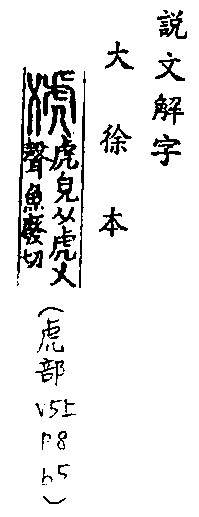 説文解字
大徐本
虎皃从虎乂
聲魚廢切
(虎部
V5上
P8
b5)